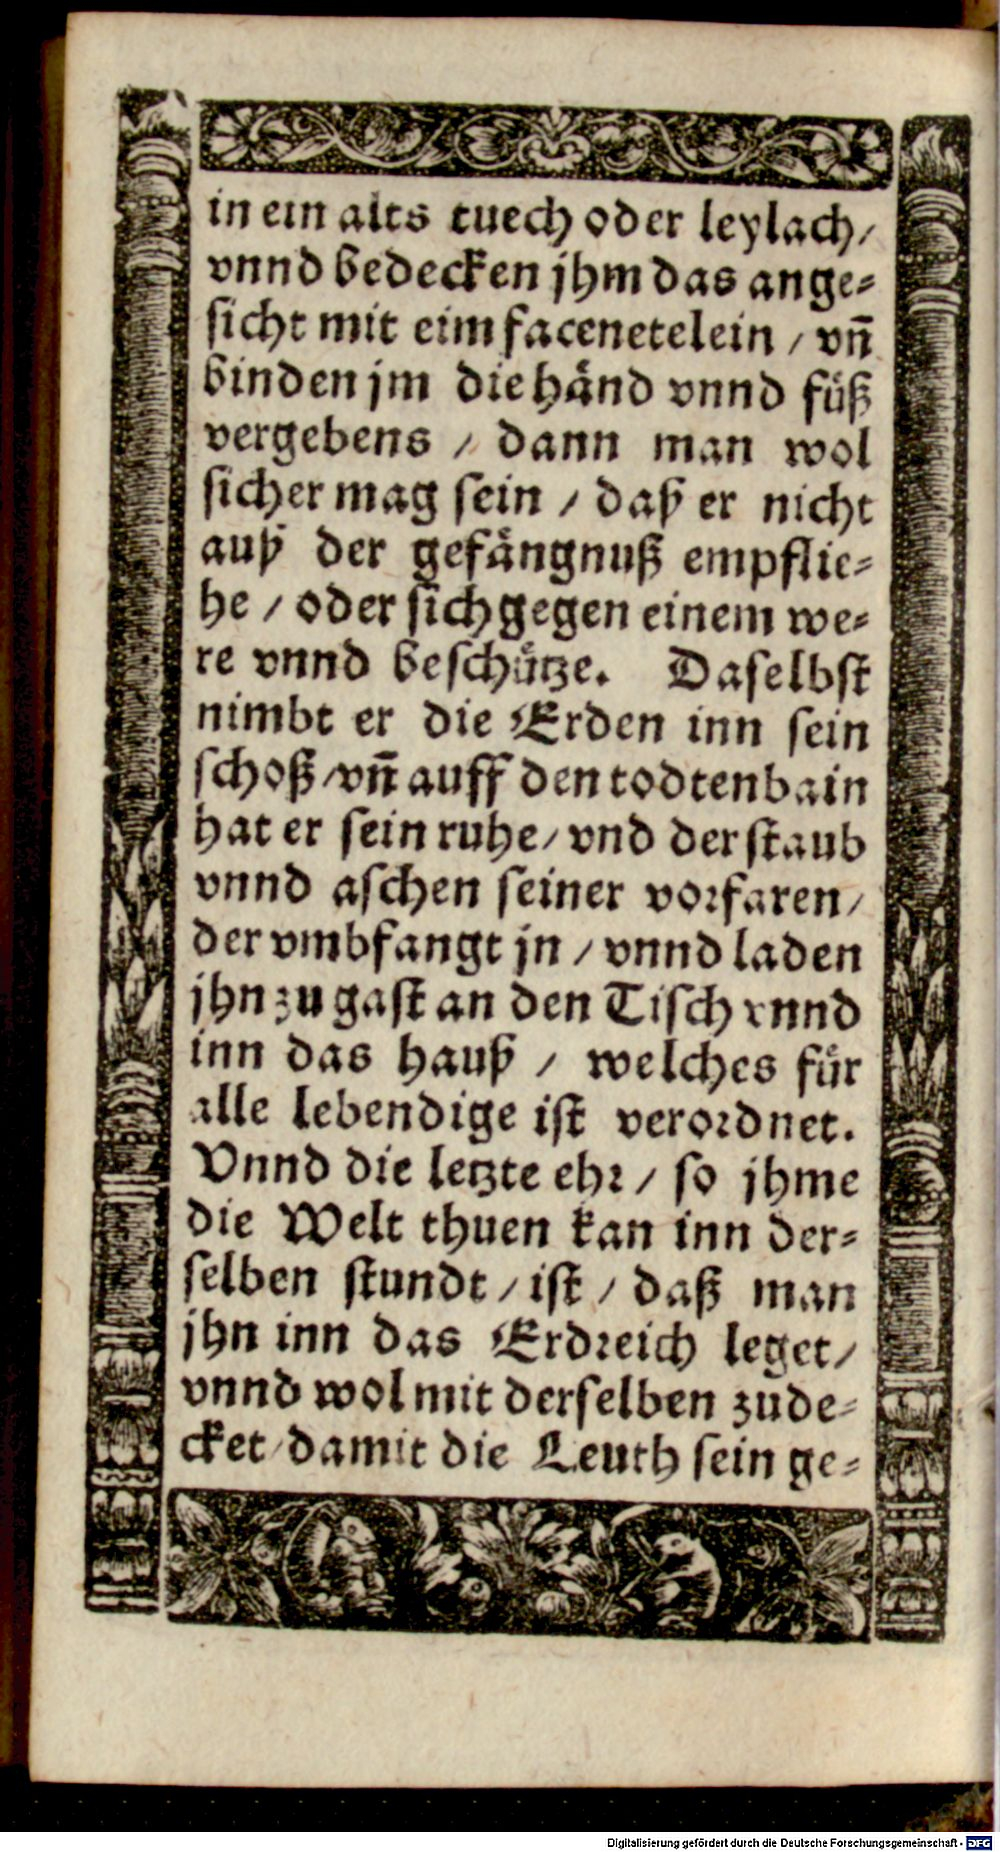 in ein alts tuech oder leylach/
vnnd bedecken jhm das ange⸗
sicht mit eim facenetelein / vñ
binden jm die händ vnnd füß
vergebens / dann man wol
sicher mag sein / daß er nicht
auß der gefängnuß empflie⸗
he / oder sich gegen einem we⸗
re vnnd beschütze. Daselbst
nimbt er die Erden inn sein
schoß/vñ auff den todtenbain
hat er sein ruhe/ vnd der staub
vnnd aschen seiner vorfaren/
der vmbfangt jn / vnnd laden
jhn zu gast an den Tisch vnnd
inn das hauß / welches für
alle lebendige ist verordnet.
Vnnd die letzte ehr / so jhme
die Welt thuen kan inn der⸗
selben stundt / ist / daß man
jhn inn das Erdreich leget/
vnnd wol mit derselben zude⸗
cket/damit die Leuth sein ge⸗
Digitalisierung gefördert durch die Deutsche Forschungsgemeinschaft - DFG